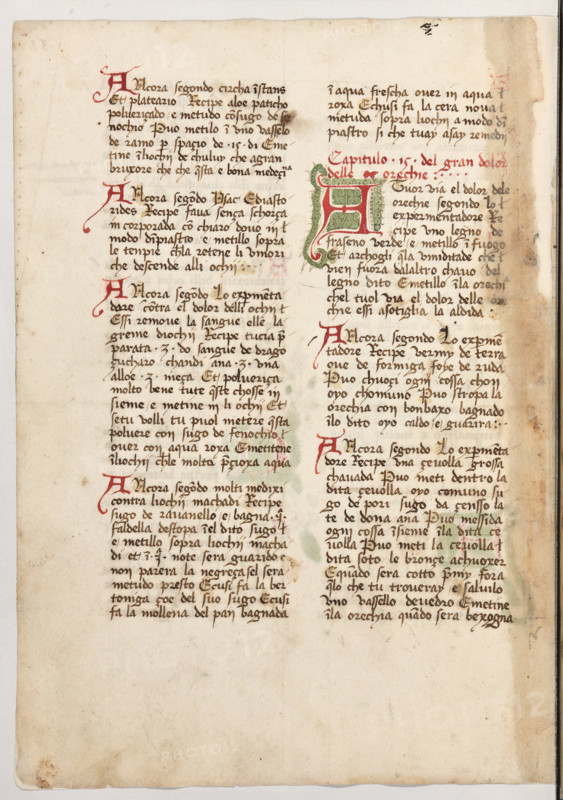 Ancora segondo circha īstans
Et plateario Recipe aloe paticho
poluericado e metudo cōsugo de fe
nochio Puo metilo ī vno vassello
de ramo p spacio de .15. di Eme
tine ī liochi de chuluy che agran
bruxore che che q̄sta e bona medeçīa
Ancora segōdo ysac Ediasto
rides Recipe faua sença schorça
in corporada cō chiaro douo in l
modo dīpiastro e metillo sopra
le tempie chla retene li vmori
che descende alli ochi
Ancora segōdo Lo expm̄enta
dore cōtra el dolor delli ochi l
Essi remoue la sangue elle la
greme diochi Recipe tucia p̄
parata .3. do sangue de drago
çucharo chandi ana .3. vna
alloe .3. meça Et poluericha
molto bene tute q̄ste chosse in
sieme e metine in li ochi Et
setu volli tu puol metere q̄sta
poluere con sugo de fenochio l
ouer con aqua roxa Emetitene
ī liochi chle molta p̄çioxa aqua
Ancora segōdo molti medixi
contra liochi machadi Recipe
sugo de rauanello e bagna .1.
faldella destopa ī el dito sugo l
e metillo sopra liochi macha
di et ī .3. note sera guarido e
non parera la negreça sel sera
metudo presto Ecusi fa la ber
toniga çoe del suo sugo Ecusi
fa la mollena del pan bagnada
ī aqua frescha ouer in aqua l
roxa Echusi fa la cera noua l
metuda sopra liochi a modo dī
piastro si che tuay asay remedii
Capitulo .15. del gran dolor
delle orechie
A Tuor via el dolor dele
orechie segondo l
expermentadore Re
cipe vno legno de
fraseno verde e metillo ī fuogo
Et archogli q̄la vmiditade che l
vien fuora dalaltro chauo del
legno dito Emetillo ī la orechia
chel tuol via el dolor delle ore
chie essi asotiglia la aldida
Ancora segondo Lo expm̄e
tadore Recipe vermy de terra
oue de formiga foye de ruda
Puo chuoci ogni cossa chon
oyo chomuno Puo stropa la
orechia con bonbaxo bagnado
ī lo dito oyo caldo e guarira
Ancora segondo Lo expm̄enta
dore Recipe vna çeuolla grossa
chauada Puo meti dentro la
dita çeuolla oyo comuno su
go de pori sugo da çensso la
te de dona ana Puo messida
ogni cossa ī sieme ī la dita ce
uolla Puo meti la ceuolla l
dita soto le bronçe achuoxer
Equādo sera cotto p̄my fora
q̄llo che tu troueray e saluilo
vno vassello deuedro Emetine
ī la orechia quādo sera bexogna